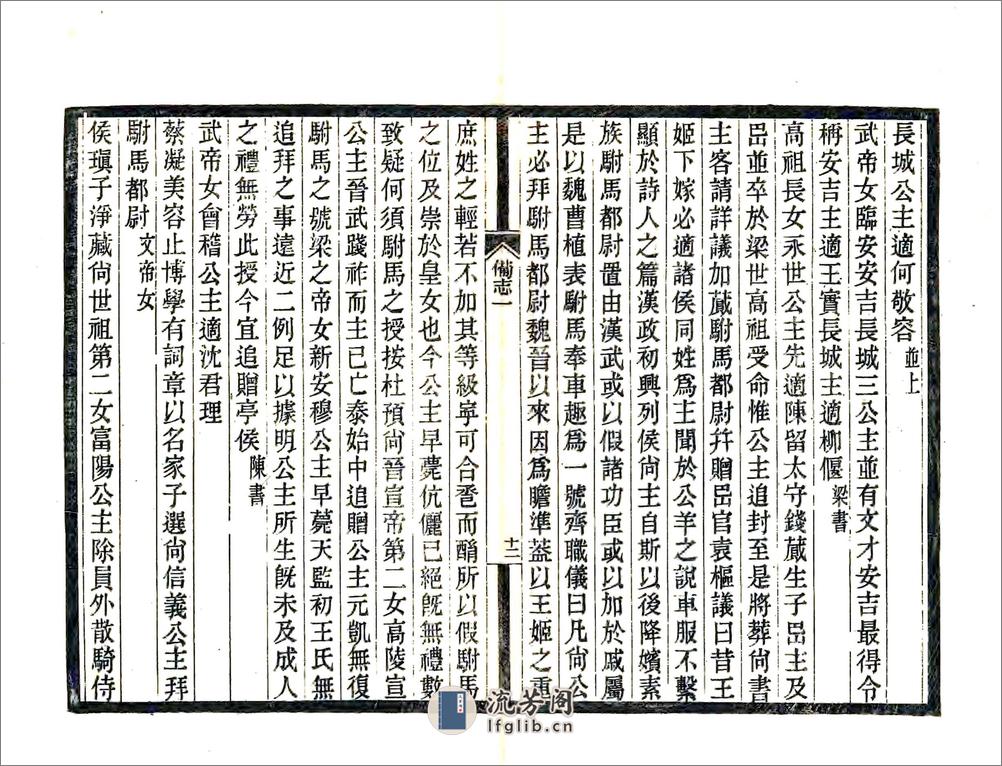 長城公主適何敬容並上
武帝女臨安安吉長城三公主並有文才安吉最得令
稱安吉主適王實長城主適柳偃梁書
高祖長女永世公主先適陳留太守錢蕆生子岊主及
岊並卒於梁世高祖受命惟公主追封至是將葬尙書
主客請詳議加蕆駙馬都尉幷贈岊官袁樞議曰昔王
姬下嫁必適諸侯同姓爲主聞於公羊之說車服不繫
顯於詩人之篇漢政初興列侯尙主自斯以後降嬪素
族駙馬都尉置由漢武或以假諸功臣或以加於戚屬
是以魏曹植表駙馬奉車趣爲一號齊職儀曰凡尙公
主必拜駙馬都尉魏晉以來因爲瞻準葢以王姬之重
備志一
十二
庶姓之輕若不加其等級寜可合卺而酳所以假駙馬
之位及崇於皇女也今公主早薨伉儷已絕旣無禮數
致疑何須駙馬之授按杜預尙晉宣帝第二女高陵宣
公主晉武踐祚而主已亡泰始中追贈公主元凱無復
駙馬之號梁之帝女新安穆公主早薨天監初王氏無
追拜之事遠近二例足以據明公主所生旣未及成人
之禮無勞此授今宜追贈亭侯陳書
武帝女會稽公主適沈君理
蔡凝美容止博學有詞章以名家子選尙信義公主拜
駙馬都尉文帝女
侯瑱子淨藏尙世祖第二女富陽公主除員外散騎侍
流芳阁
lfglib.cn